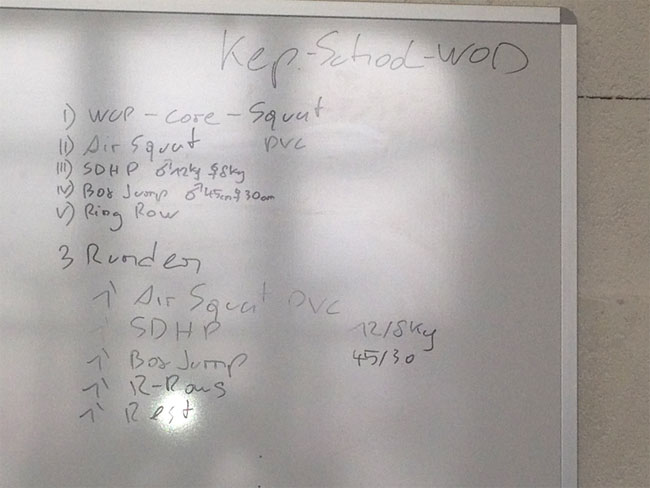 Kep.-School-WOD
I) WUP - Core - Squat
II) Air Squat PVC
III) SDHP ♂12kg ♀8kg
IV) Box Jump ♂45cm ♀30cm
V) Ring Row
3 Runden
1' Air Squat PVC
1' SDHP 12/8kg
1' Box Jump 45/30
1' R-Rows
1' Rest